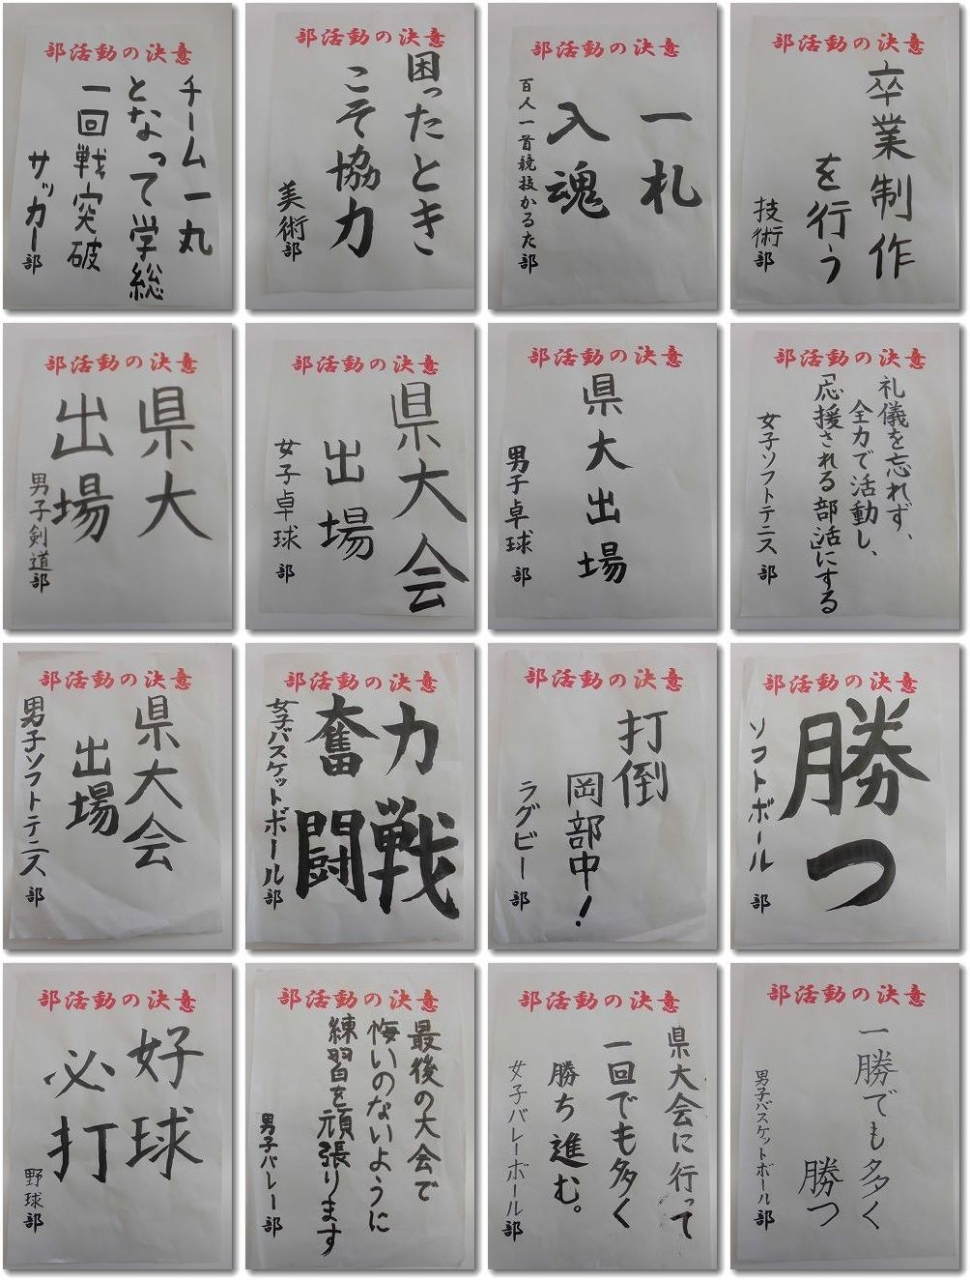 部活動の決意
チーム一丸
となって学総
一回戦突破
サッカー部
部活動の決意
困ったとき
こそ協力
美術部
部活動の決意
一札
入魂
百人一首競技かるた部
部活動の決意
卒業制作
を行う
技術部
部活動の決意
県大
出場
男子剣道部
部活動の決意
県大会
出場
女子卓球部
部活動の決意
県大出場
男子卓球部
部活動の決意
礼儀を忘れず、
全力で活動し、
「応援される部活」にする
女子ソフトテニス部
部活動の決意
県大会
出場
男子ソフトテニス部
部活動の決意
力戦
奮闘
女子バスケットボール部
部活動の決意
打倒
岡部中!
ラグビー部
部活動の決意
勝つ
ソフトボール部
部活動の決意
好球
必打
野球部
部活動の決意
最後の大会で
悔いのないように
練習を頑張ります
男子バレー部
部活動の決意
県大会に行って
一回でも多く
勝ち進む。
女子バレーボール部
部活動の決意
一勝でも多く
勝つ
男子バスケットボール部